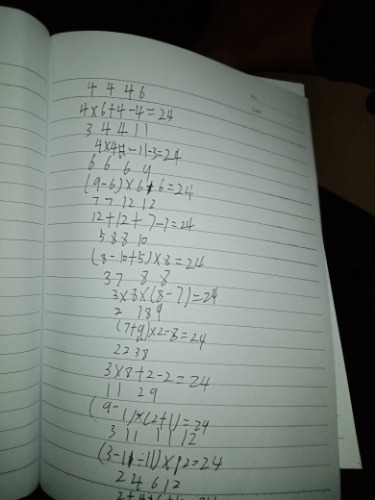 4 4 4 6
4×6+4-4=24
3 4 4 11
6 6 6 9
(9-6)×6+6=24
7 7 12 12
12+12+7-7=24
5 8 8 10
(8-10+5)×8=24
3 7 8 8
3×8×(8-7)=24
2 7 8 9
(7+9)×2-8=24
2 2 3 8
3×8+2-2=24
1 1 2 9
(9-1)×(2+1)=24
3 11 11 12
(3-11÷11)×12=24
2 4 6 12